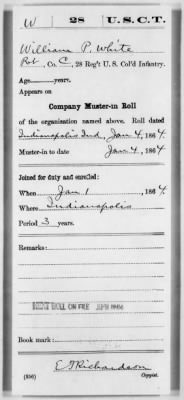 W 28 U.S.C.T.
William P. White
Pvt, Co. C, 28 Reg't U. S. Col'd Infantry.
Age years.
Appears on
Company Muster-in Roll
of the organization named above. Roll dated
Indianapolis Ind, Jan 4, 1864
Muster-in to date Jan 4, 1864
Joined for duty and enrolled:
When Jan 1, 1864
Where Indianapolis
Period 3 years.
Remarks:
ROLL ON FILE
Book mark:
E T Richardson
(356) Copyist.